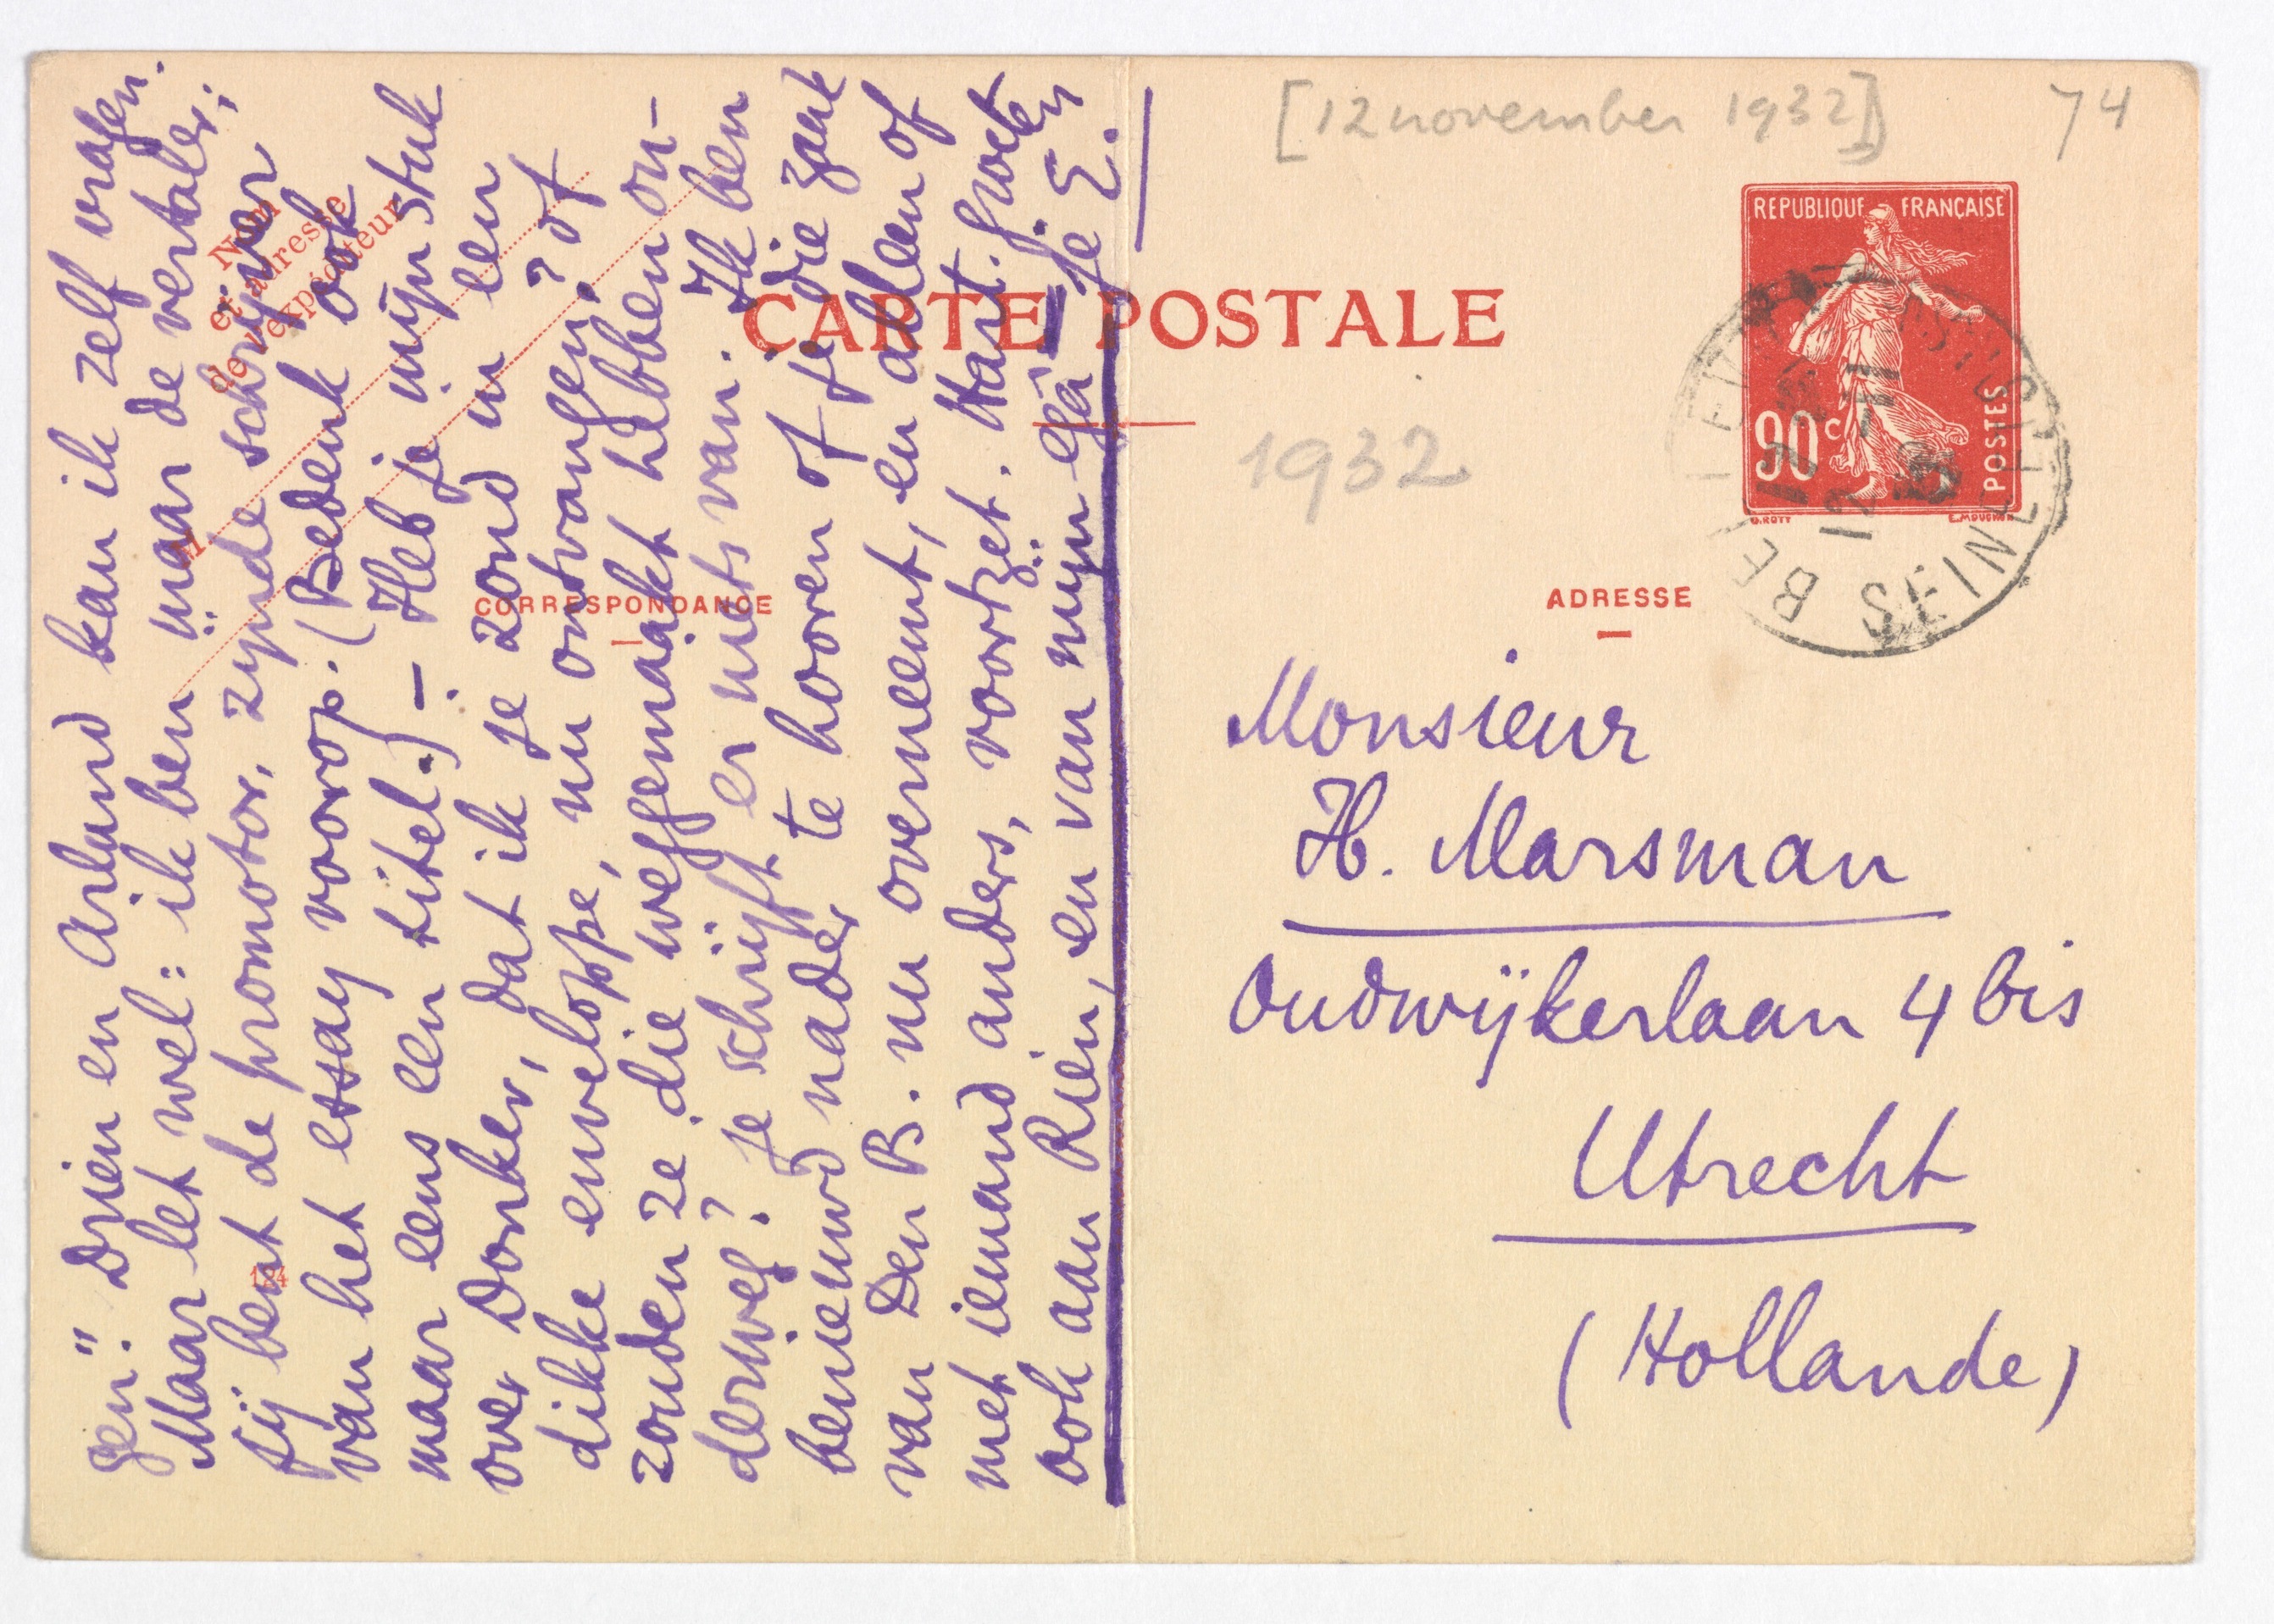 gen." Drien en Arland kan ik zelf vragen.
Maar let wel: ik ben maar de vertaler;
jij bent de promotor, zijnde schrijver
van het essay voorop. (Bedenk ook
maar eens een titel.) — Heb je mijn stuk
over Donker, dat ik je zond in een
dikke enveloppe, nu ontvangen? of
zouden ze die weggemaakt hebben on-
derweg? Je schrijft er niets van. Ik ben
benieuwd nader te hooren of je die zaak
van Den B. nu overneemt, en alleen of
met iemand anders, voortzet. Hart. groeten
ook aan Rien, en van mijn egâ — je E.
Nom
et adresse
de l'expéditeur
CARTE POSTALE
CORRESPONDANCE
[12 november 1932]
74
1932
REPUBLIQUE FRANÇAISE
90c
POSTES
O.ROTY
E.MOUCHON
12
SEINE
ADRESSE
Monsieur
H. Marsman
Oudwijkerlaan 4 bis
Utrecht
(Hollande)